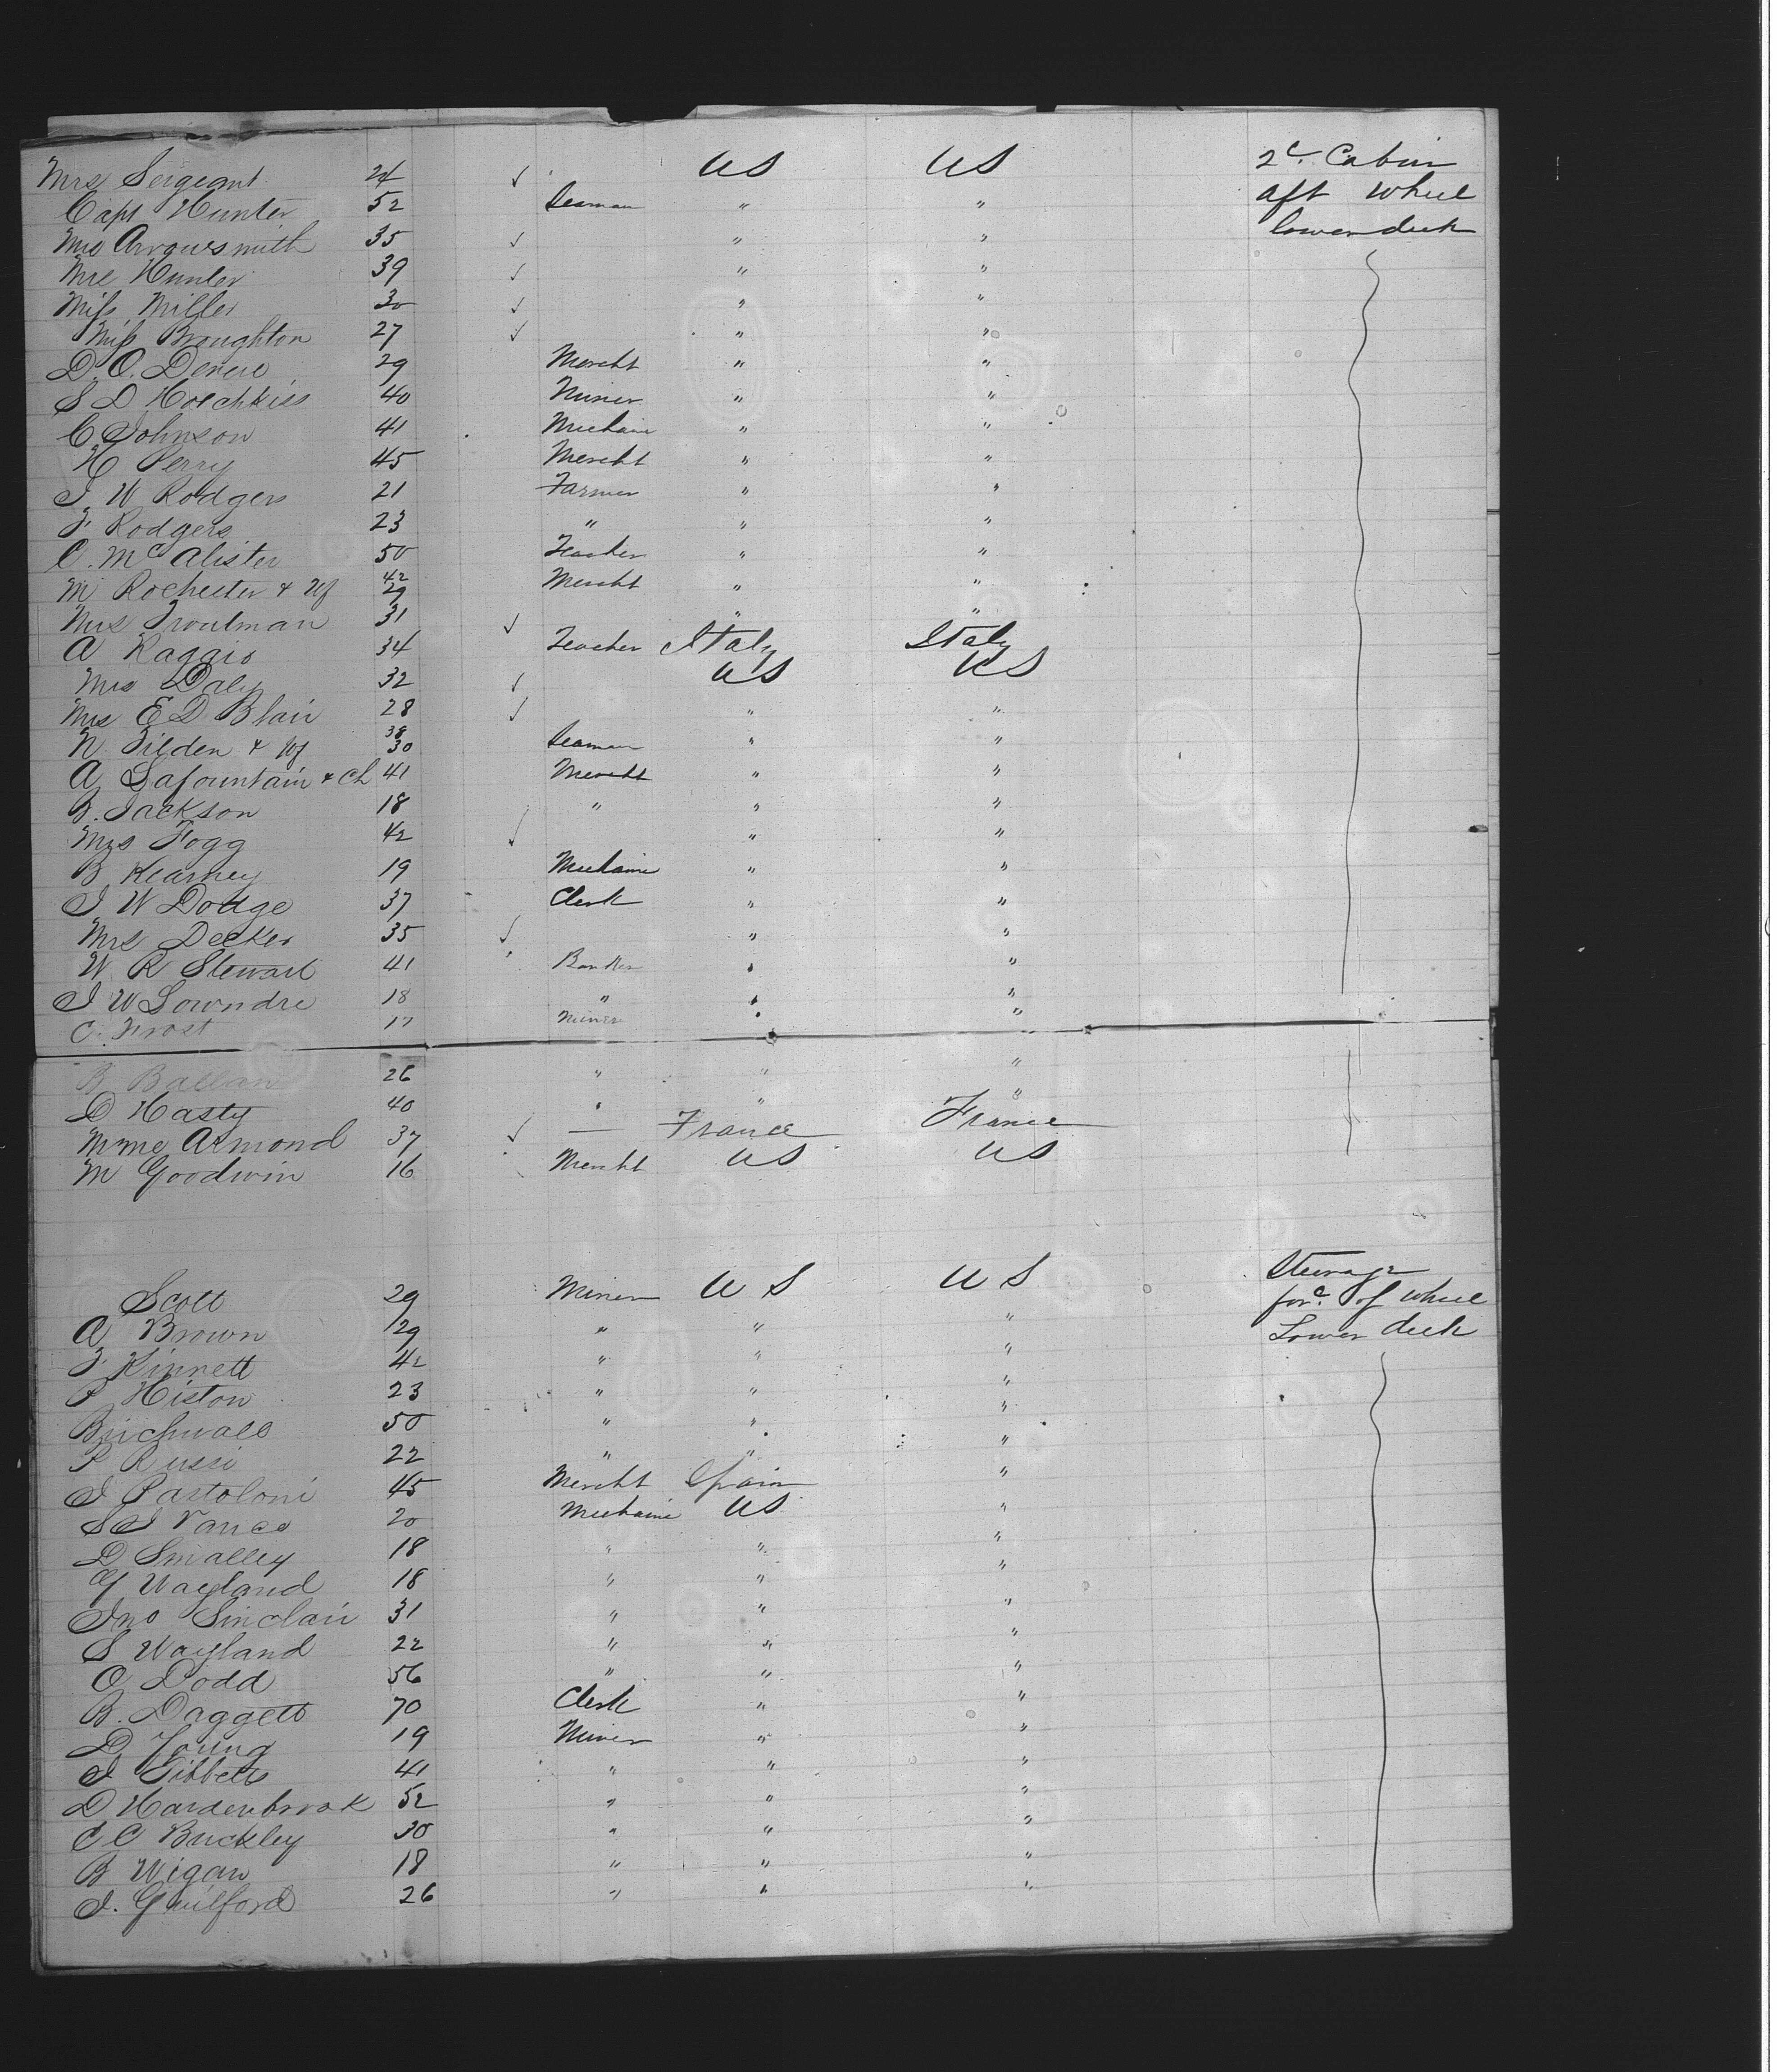 Mrs Sergeant 24 ✓ US US 2c. Cabin
Capt Hunter 52 Seaman " " aft wheel
Mrs Arrowsmith 35 ✓ " " lower deck
Mrs Hunter 39 ✓ " "
Miss Miller 30 ✓ " "
Miss Broughton 27 ✓ " "
D. O. 29 Mercht " "
S D Hotchkiss 40 Miner " "
C Johnson 41 Mechanic " "
H Perry 45 Mercht " "
J W Rodgers 21 Farmer " "
F Rodgers 23 " " "
C. McAlister 50 Teacher " "
M Rochester & Wf 42 29 Mercht " "
Mrs Troutman 31 ✓ " "
A Raggio 34 Teacher Italy Italy
Mrs Daly 32 ✓ US US
Mrs E D Blair 28 ✓ " "
N. Tilden & Wf 38 30 Seaman " "
A Lafountain & Ch 41 Mercht " "
B. Jackson 18 " " "
Mrs Fogg 42 ✓ " "
B Kearney 19 Mechanic " "
J W Dodge 37 Clerk " "
Mrs Decker 35 ✓ " "
W R Stewart 41 Banker " "
J W Lowndre 18 " " "
C. Frost 17 Miner " "
B Ballan 26 " " "
D Hasty 40 " " "
Mme Armond 37 ✓ — France France
M Goodwin 16 Mercht US US
Scott 29 Miner US US Steerage
A Brown 29 " " " ford. of wheel
F Kinnett 42 " " " Lower deck
P Histon 23 " " "
Birchwald 50 " " "
P Russi 22 " " "
J Pastoloni 45 Mercht Spain "
S J Vance 20 Mechanic US "
D Smalley 18 " " "
G Wayland 18 " " "
Jno Sinclair 31 " " "
S Wayland 22 " " "
O Dodd 56 " " "
B. Daggett 70 Clerk " "
D Young 19 Miner " "
J Tibbetts 41 " " "
D Hardenbrook 52 " " "
C C Buckley 30 " " "
B Wigan 18 " " "
J. Guilford 26 " " "